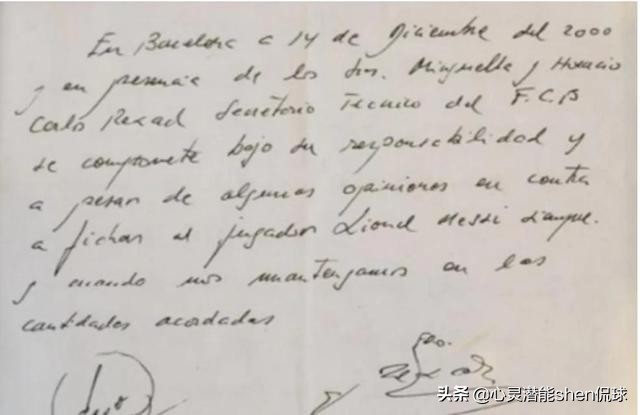 En Barcelona a 14 de Diciembre del 2000
y en presencia de los Sres. Minguella y Horacio
Carlos Rexach Secretario Técnico del F.C.B
se compromete bajo su responsabilidad y
a pesar de algunas opiniones en contra
a fichar al jugador Lionel Messi siempre
y cuando nos mantengamos en las
cantidades acordadas
Fdo.
头条 @心灵潜能shen侃球